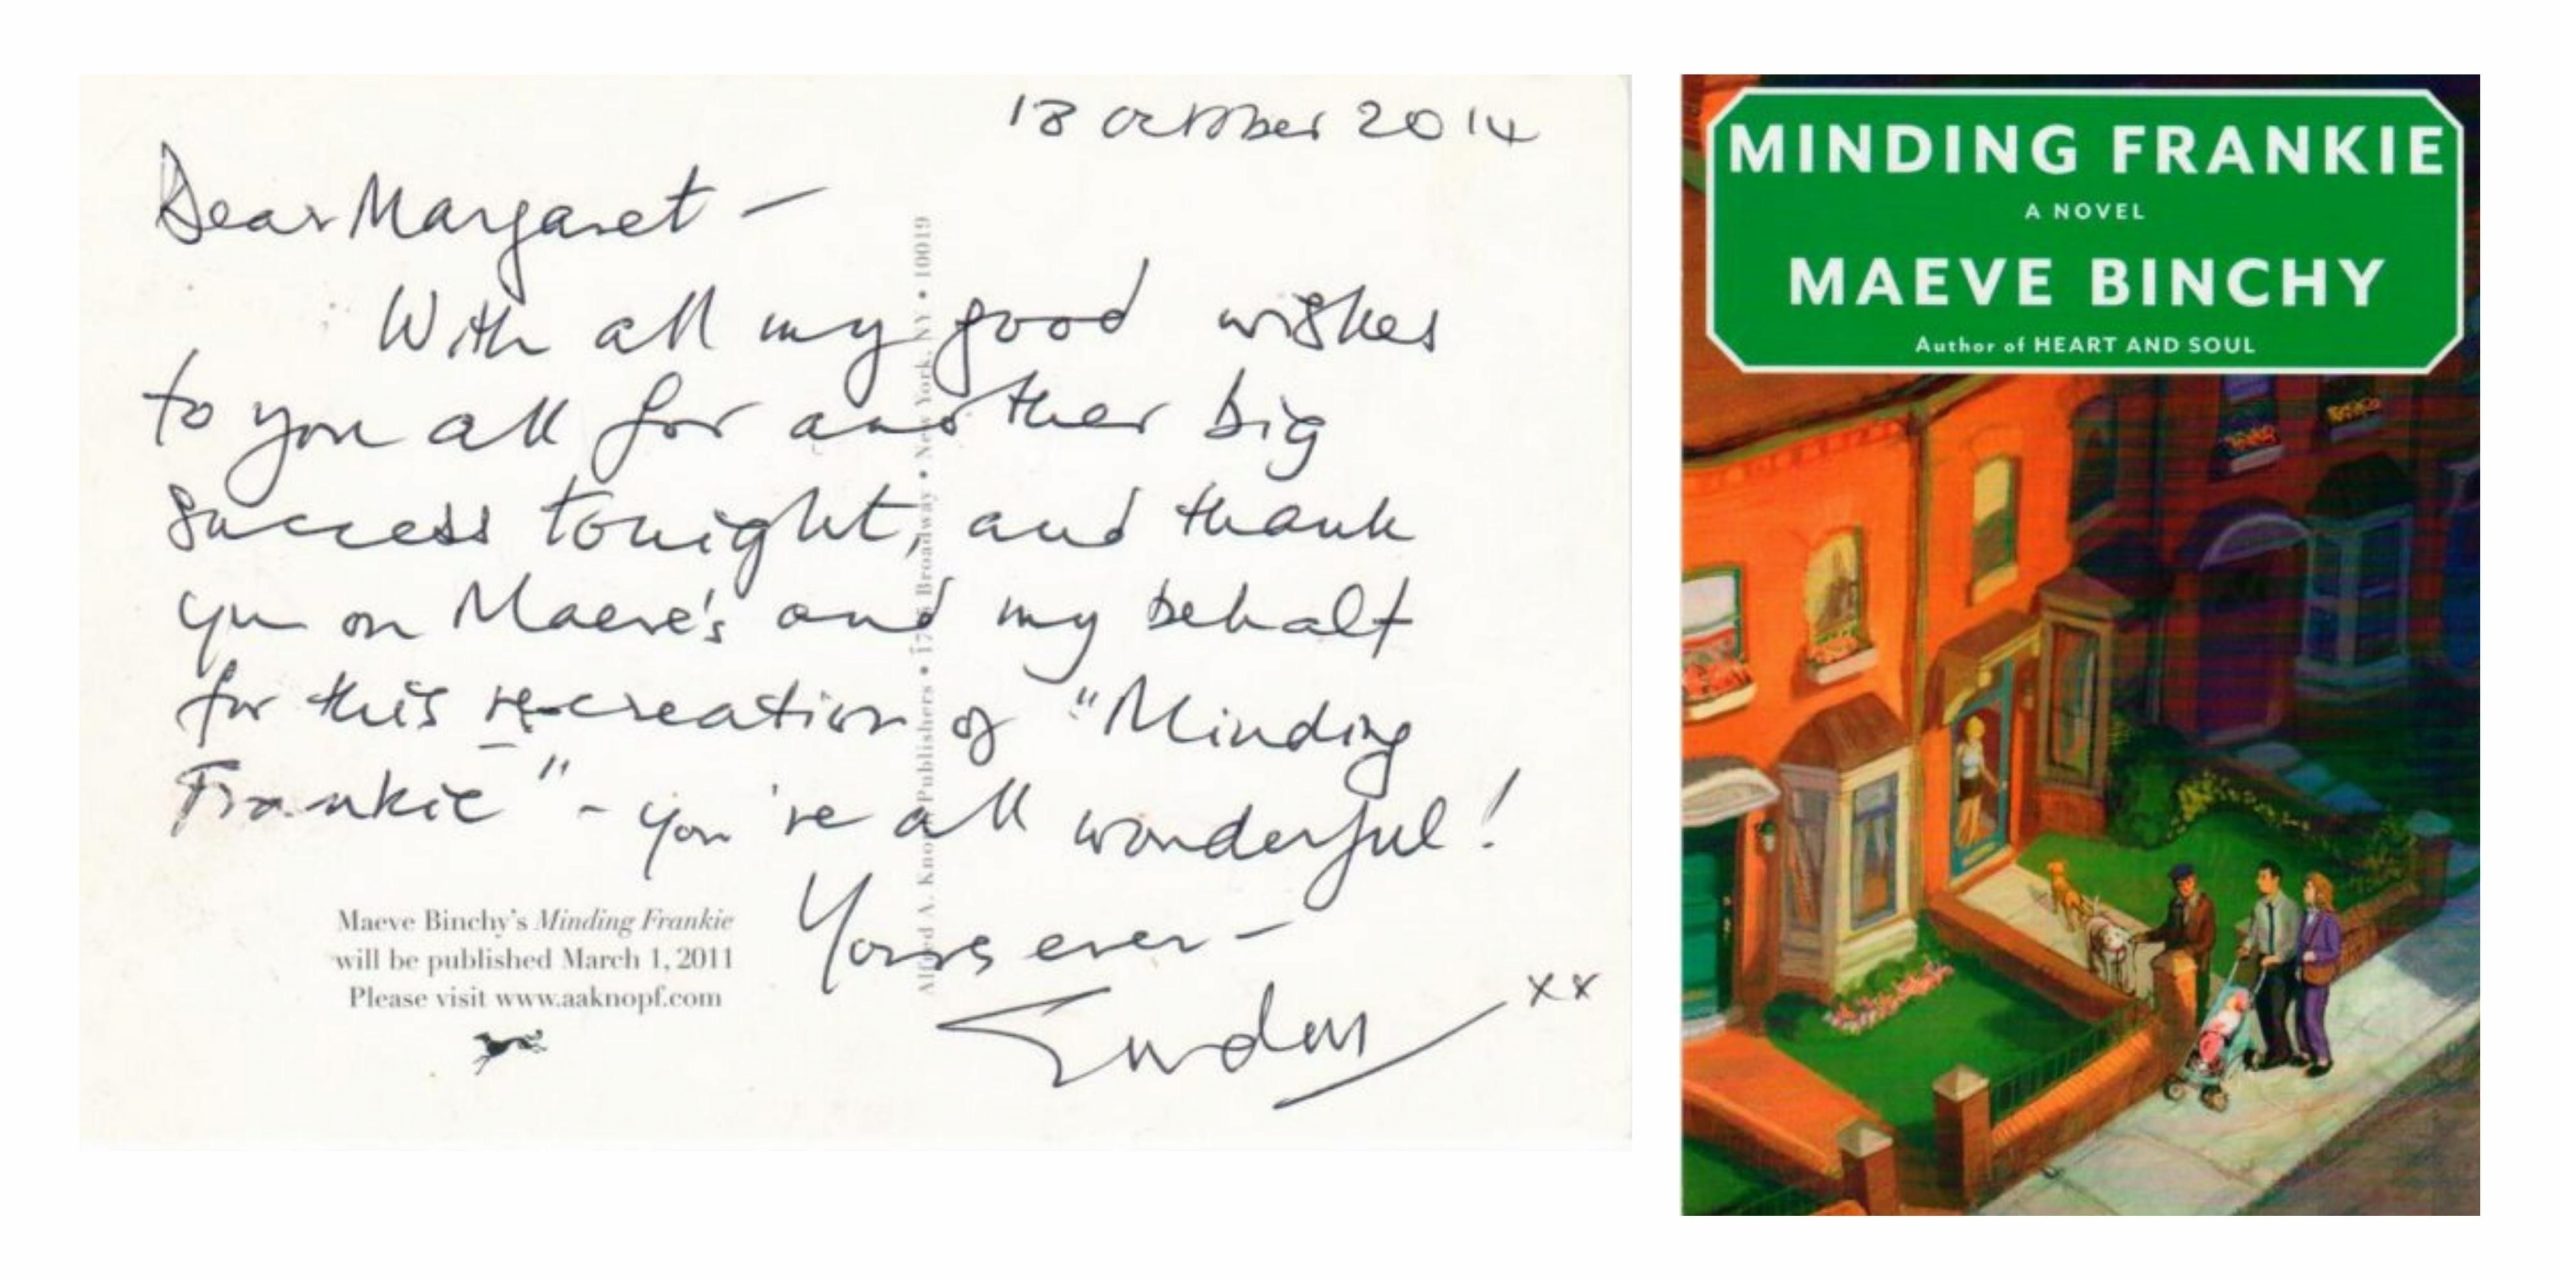 October 2014
Dear Margaret –
With all my good wishes
to you all for another big
success tonight, and thank
you on Maeve's and my behalf
for this re-creation of "Minding
Frankie" – you're all wonderful!
Yours ever –
xx
Maeve Binchy's Minding Frankie
will be published March 1, 2011
Please visit www.aaknopf.com
Alfred A. Knopf Publishers • Broadway • New York, NY • 10019
MINDING FRANKIE
A NOVEL
MAEVE BINCHY
Author of HEART AND SOUL